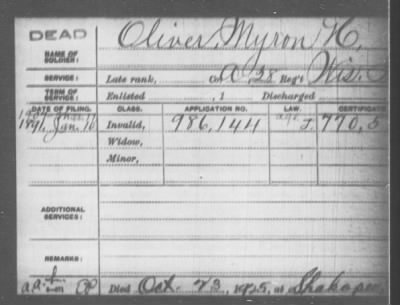 DEAD
Oliver, Myron H.
NAME OF
SOLDIER:
SERVICE: Late rank, Co. A, 28 Reg't Wis.
TERM OF
SERVICE: Enlisted , 1 Discharged
DATE OF FILING. CLASS. APPLICATION NO. LAW. CERTIFICATE
1891, Jan. 16 Invalid, 986,144 J. 770,5
Widow,
Minor,
ADDITIONAL
SERVICES:
REMARKS:
Died Oct. 23, 1925, at Shakopee